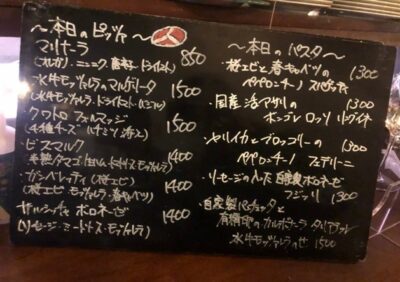 〜本日のピッツァ〜
マリナーラ
(オレガノ・ニンニク ドライトマト) 850
水牛モッツァレラのマルゲリータ
(水牛モッツァレラ・ドライトマト・バジル) 1500
クワトロ フォルマッジ
(4種チーズ ハチミツ 1500
ビスマルク
半熟タマゴ モッツァレラ) 1400
ガンベレッティ(桜エビ)
(桜エビ モッツァレラ・春キャベツ) 1400
サルシッチャ ボロネーゼ
(ソーセージ・ミートソース・モッツァレラ) 1400
〜本日のパスタ〜
・桜エビと春キャベツの
ペペロンチーノ スパゲッティ 1300
・国産活アサリの
ボンゴレ ロッソ リングイネ 1300
・ヤリイカとブロッコリーの
ペペロンチーノ フェデリーニ 1300
・ソーセージの入った自家製ボロネーゼ
フジッリ 1300
・自家製パンチェッタと
有機卵のカルボナーラ タリアテッレ
水牛モッツァレラのせ 1500